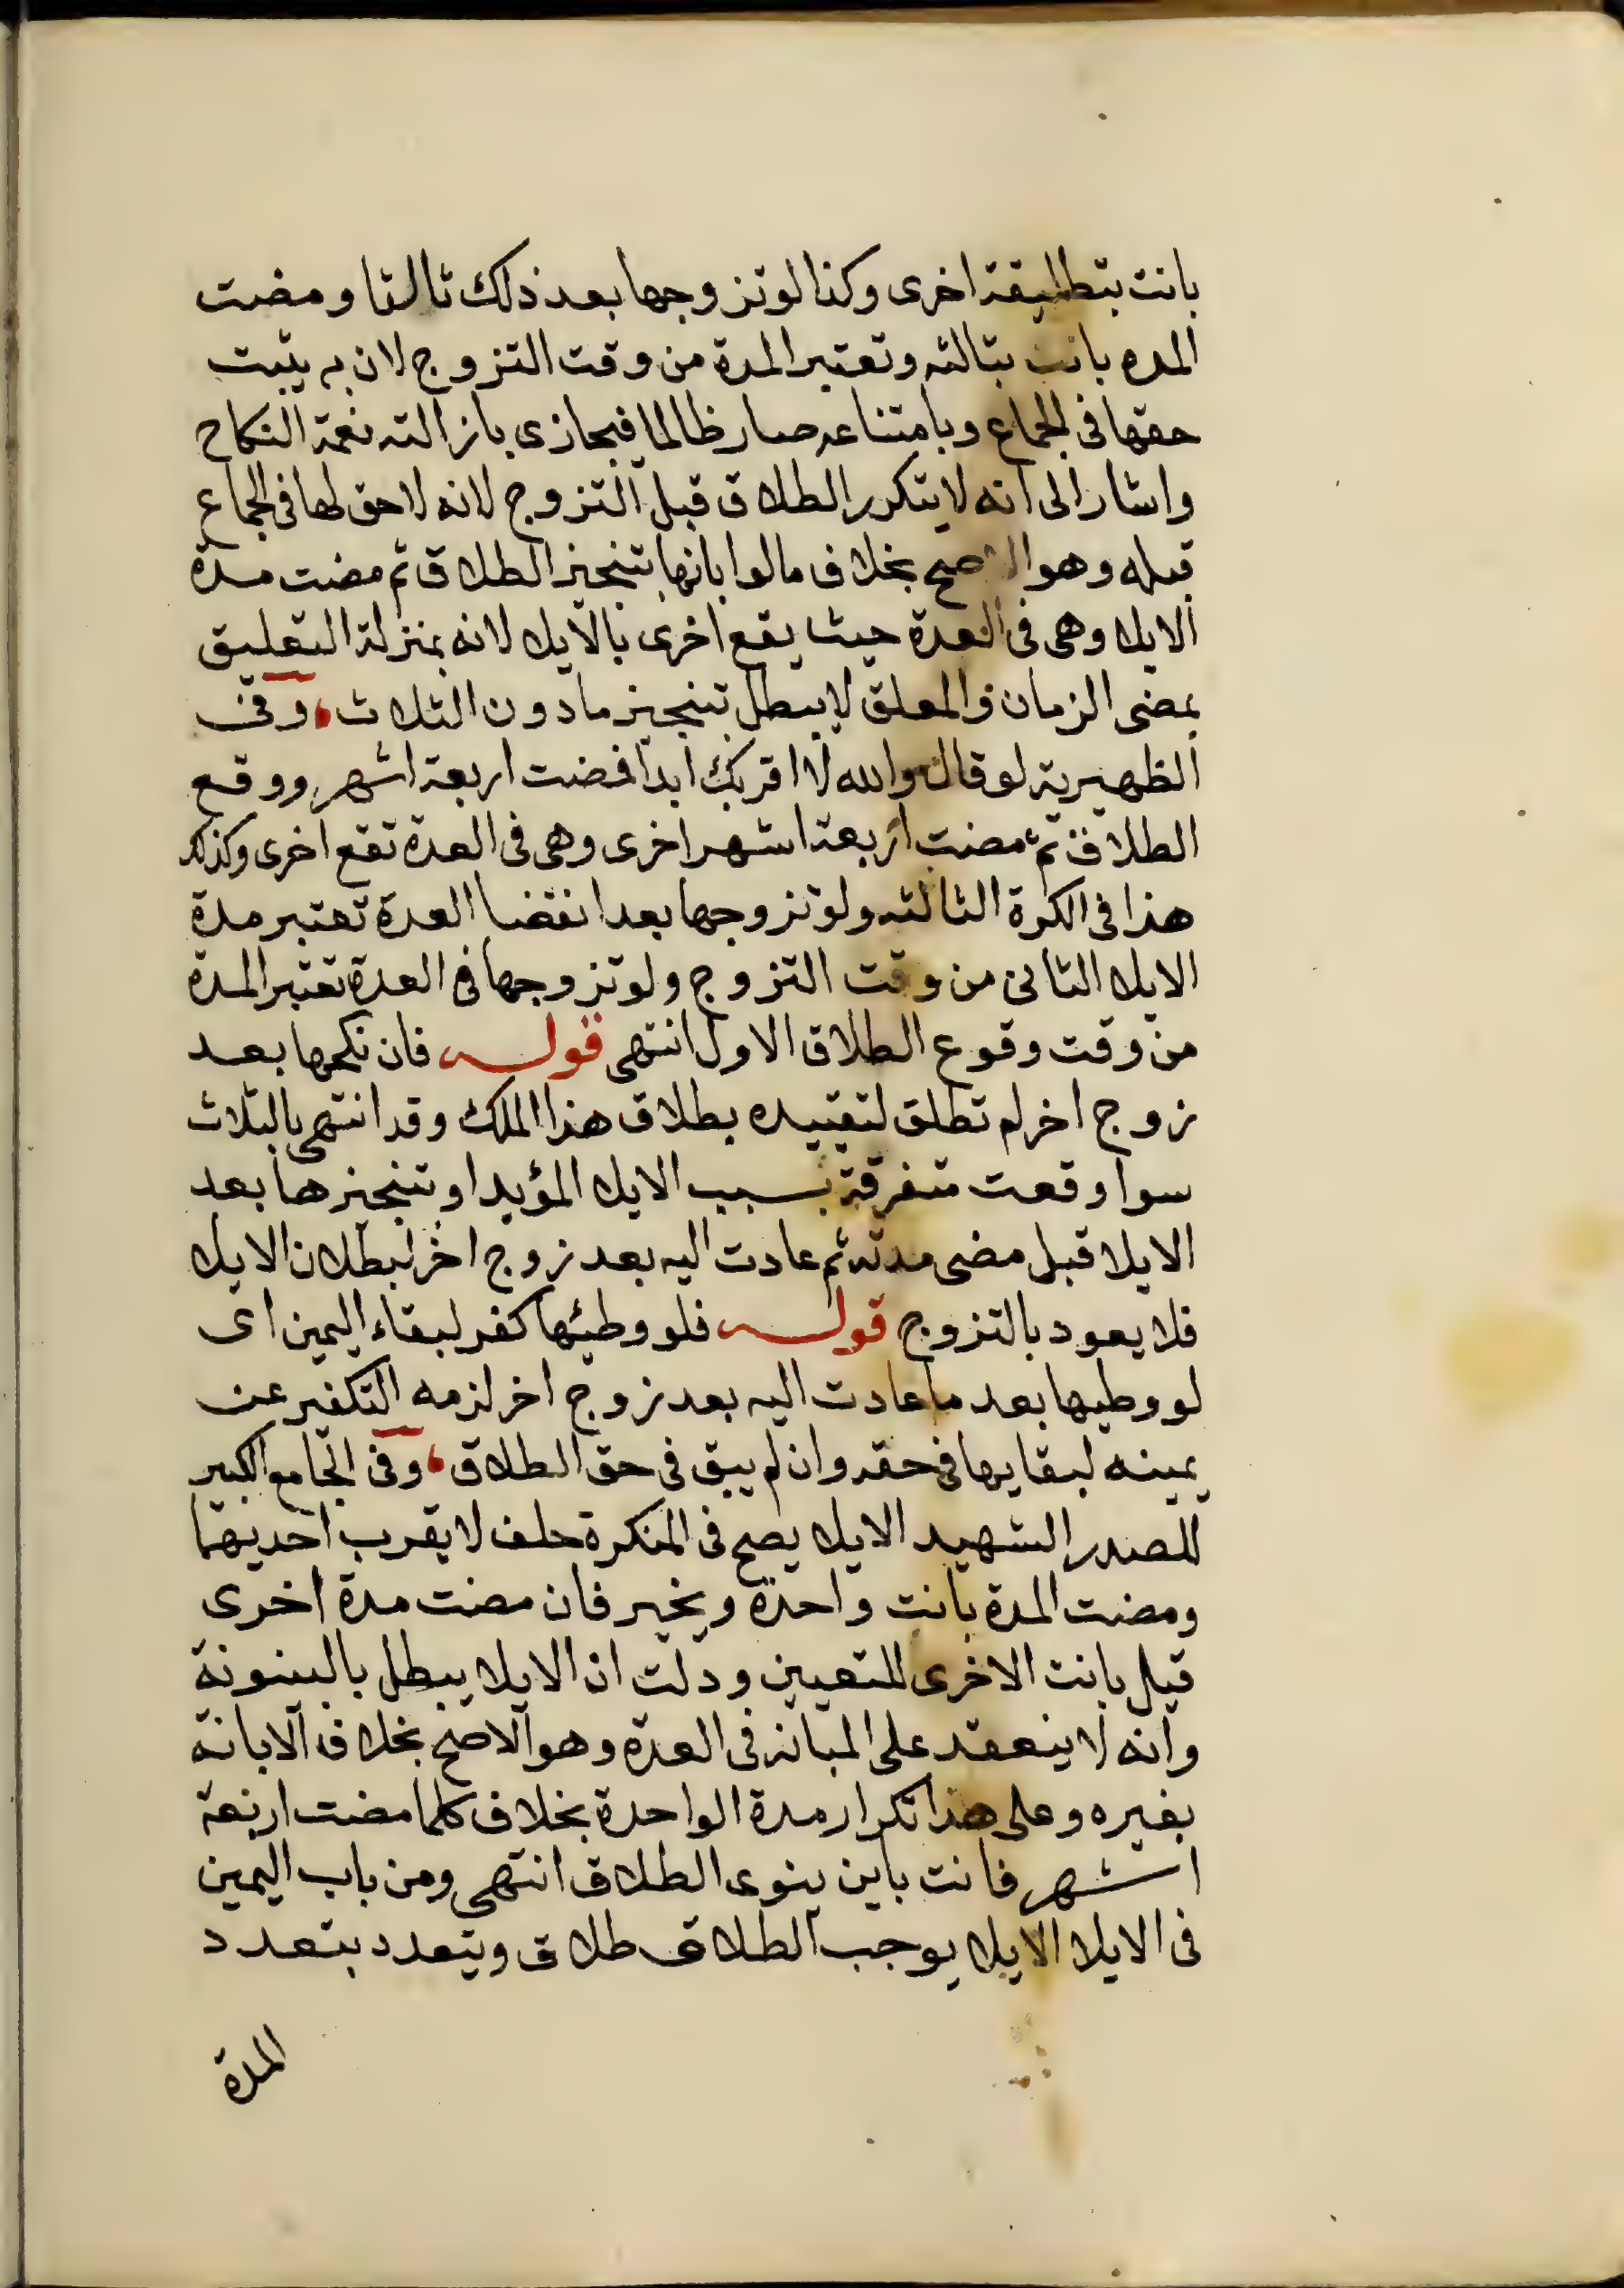 بانت بتطليقة اخرى وكذا لو تزوجها بعد ذلك ثالثا ومضت
المده بانت بثالثه وتعتبر المدة من وقت التزوج لان به يثبت
حقها فى الجماع وبامتناعه صار ظالما فيجازى بازالته نعمة النكاح
واشار الى انه لا يتكرر الطلاق قبل التزوج لانه لا حق لها فى الجماع
قبله وهو الاصح بخلاف ما لو ابانها بتنجيز الطلاق ثم مضت مدة
الايلا وهى فى العدة حيث يقع اخرى بالايلا لانه بمنزلة التعليق
بمضى الزمان والمعلق لا يبطل بتنجيز ما دون الثلاث، وفى
الظهيرية لو قال والله لا اقربك ابدا فمضت اربعة اشهر ووقع
الطلاق ثم مضت اربعة اشهر اخرى وهى فى العدة تقع اخرى وكذلك
هذا فى الكرة الثالثه ولو تزوجها بعد انقضا العدة تعتبر مدة
الايلا الثانى من وقت التزوج ولو تزوجها فى العدة تعتبر المدة
من وقت وقوع الطلاق الاول انتهى قوله فان نكحها بعد
زوج اخر لم تطلق لتقييده بطلاق هذا الملك وقد انتهى بالثلاث
سوا وقعت متفرقة بسبب الايلا المؤبد او تنجيزها بعد
الايلا قبل مضى مدته ثم عادت اليه بعد زوج اخر لبطلان الايلا
فلا يعود بالتزوج قوله فلو وطئها كفر لبقاء اليمين اى
لو وطيها بعد ما عادت اليه بعد زوج اخر لزمه التكفير عن
يمينه لبقايها فى حقه وان لم يبق فى حق الطلاق، وفى الجامع الكبير
للصدر الشهيد الايلا يصح فى المنكرة حلف لا يقرب احديهما
ومضت المدة بانت واحدة ويخير فان مضت مدة اخرى
قيل بانت الاخرى للتعيين ودلت ان الايلا يبطل بالبينونة
وانه لا ينعقد على المبانه فى العدة وهو الاصح بخلاف الابانه
بغيره وعلى هذا تكرار مدة الواحدة بخلاف كلما مضت اربعة
اشهر فانت باين ينوى الطلاق انتهى ومن باب اليمين
فى الايلا الايلا يوجب الطلاق طلاق ويتعدد بتعدد
المدة